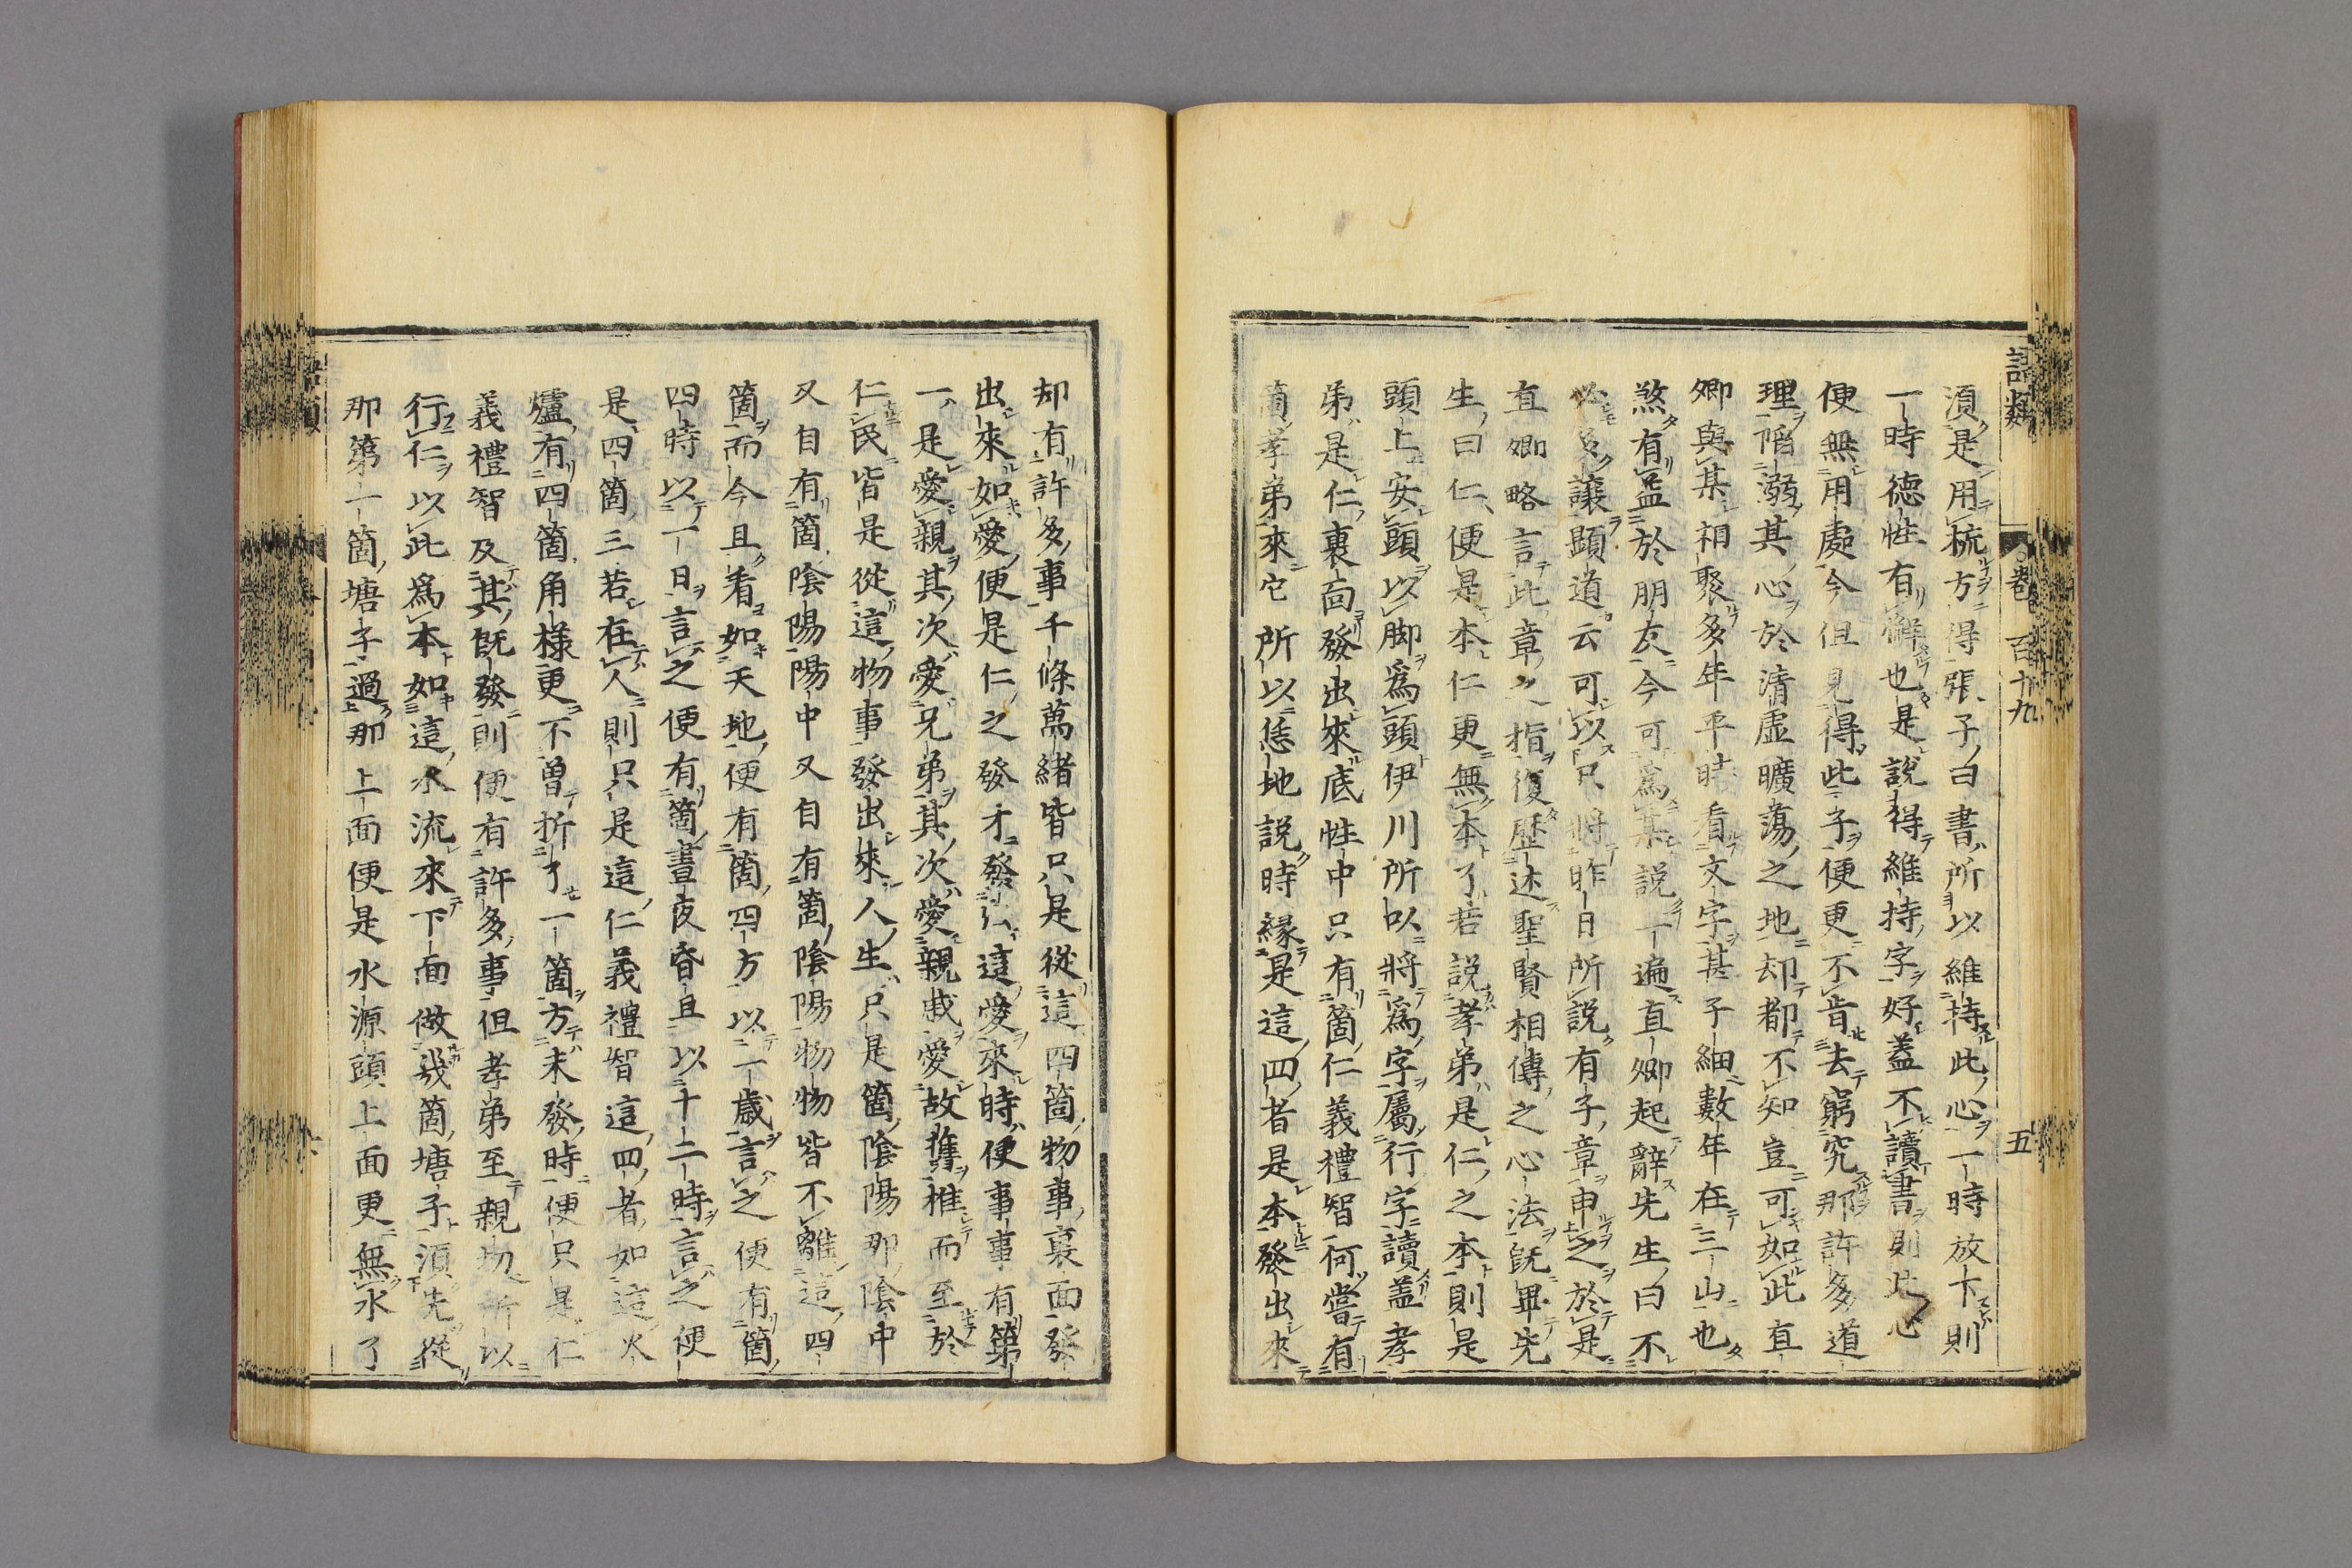 語類 卷百十九 五
須是用梳方得張子曰書所以維持此心一時放下則
一時德性有懈也是說得維持字好蓋不讀書則此心
便無用處今但見得此子便更不肯去窮究那許多道
理陷溺其心於清虛曠蕩之地却都不知豈可如此直
卿與某相聚多年平時看文字甚子細數年在三山也
煞有益於朋友今可爲某說一遍直卿起辭先生曰不
必多讓顯道云可以只將昨日所說有子章申之於是
直卿略言此章之指復歷述聖賢相傳之心法既畢先
生曰仁便是本仁更無本了若說孝弟是仁之本則是
頭上安頭以脚爲頭伊川所以將爲字屬行字讀蓋孝
弟是仁裏面發出來底性中只有箇仁義禮智何嘗有
箇孝弟來它所以恁地說時緣是這四者是本發出來
却有許多事千條萬緒皆只是從這四箇物事裏面發
出來如愛便是仁之發才發出這愛來時便事事有第
一是愛親其次愛兄弟其次愛親戚愛故舊推而至於
仁民皆是從這物事發出來人生只是箇陰陽那陰中
又自有箇陰陽陽中又自有箇陰陽物物皆不離這四
箇而今且看如天地便有箇四方以一歲言之便有箇
四時以一日言之便有箇晝夜昏旦以十二時言之便
是四箇三若在人則只是這仁義禮智這四者如這火
爐有四箇角樣更不曾折了一箇方未發時便只是仁
義禮智及其既發則便有許多事但孝弟至親切所以
行仁以此爲本如這水流來下面做幾箇塘子須先從
那第一箇塘子過那上面便是水源頭上面更無水了
語類